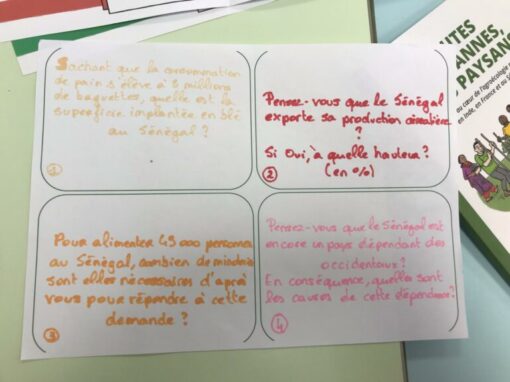 Sachant que la consommation
de pain s'élève à 8 millions
de baguettes, quelle est la
superficie implantée en blé
au Sénégal ?
1
Pensez-vous que le Sénégal
exporte sa production céréalière
?
Si Oui, à quelle hauteur ?
(en %)
2
Pour alimenter 45 000 personnes
au Sénégal, combien de
sont elles nécessaires d'après
vous pour répondre à cette
demande ?
3
Pensez-vous que le Sénégal est
encore un pays dépendant des
occidentaux ?
En conséquence, quelles sont
les causes de cette dépendance ?
4
UTES
ANNES,
PAYSANS
au cœur de l'agroécologie
en Inde, en France et au Sé